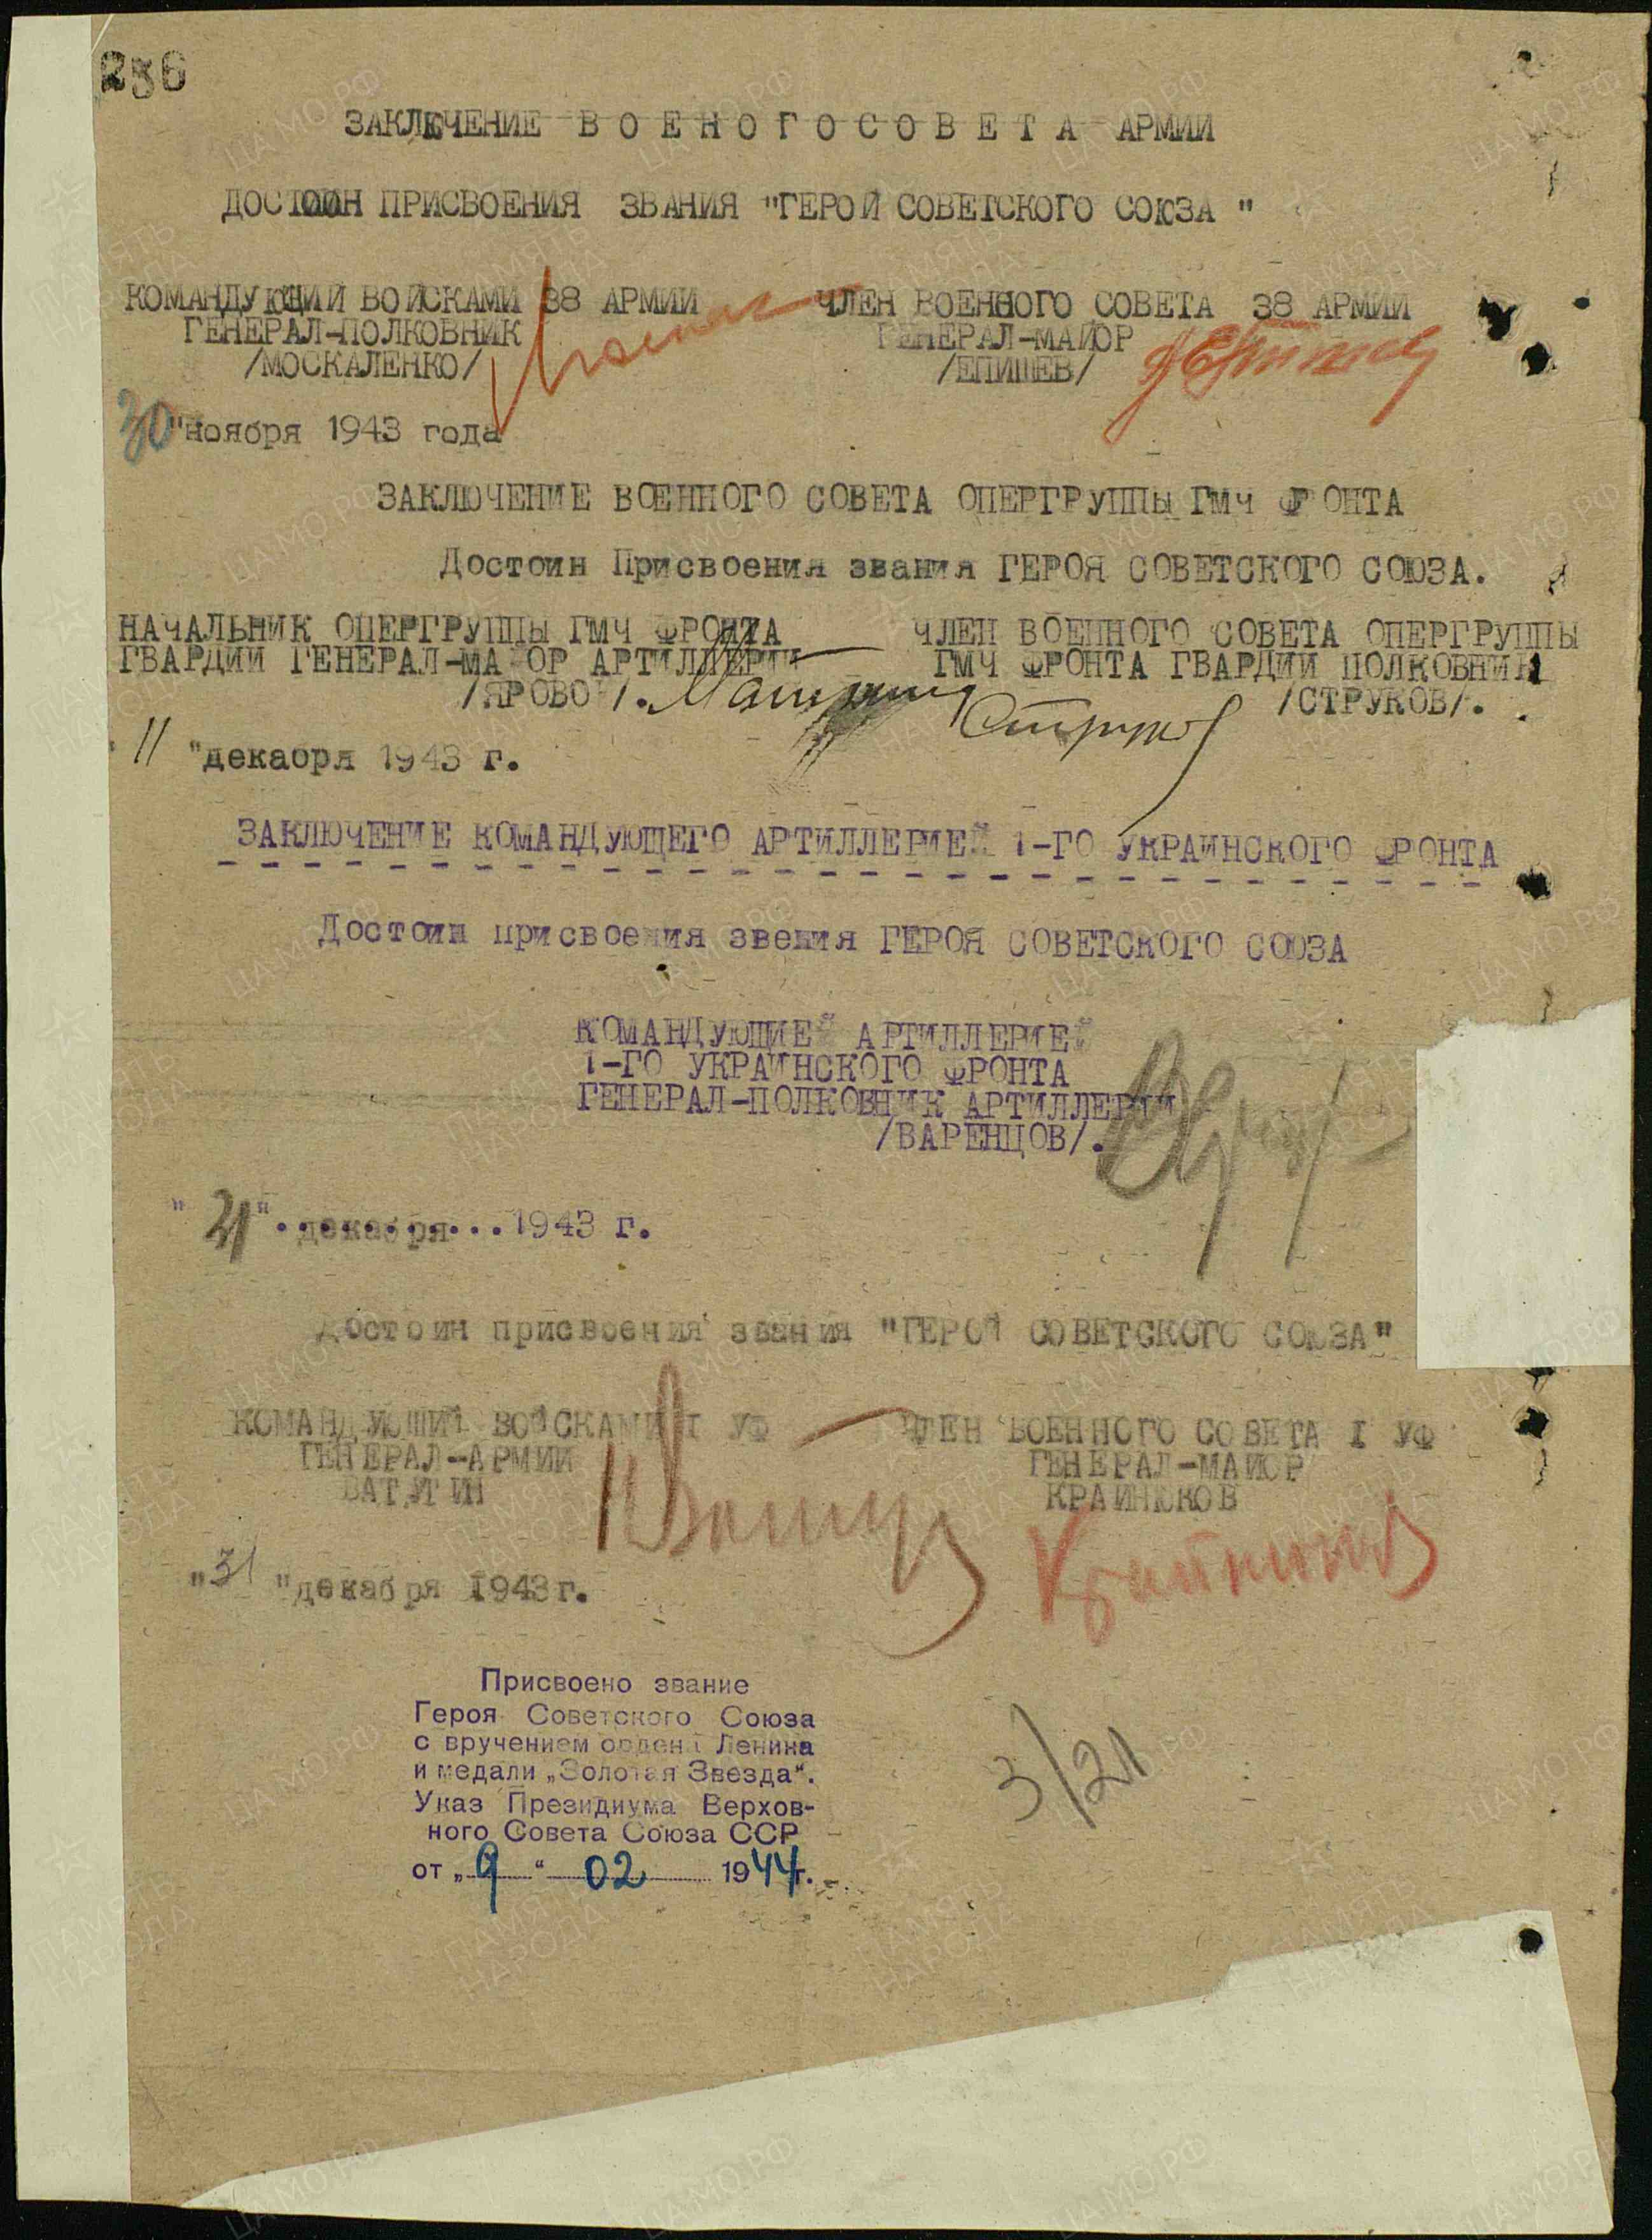 286
ЗАКЛЮЧЕНИЕ ВОЕНОГО СОВЕТА АРМИИ
ДОСТОИН ПРИСВОЕНИЯ ЗВАНИЯ "ГЕРОЙ СОВЕТСКОГО СОЮЗА "
КОМАНДУЮЩИЙ ВОЙСКАМИ 38 АРМИИ ЧЛЕН ВОЕННОГО СОВЕТА 38 АРМИИ
ГЕНЕРАЛ-ПОЛКОВНИК ГЕНЕРАЛ-МАЙОР
/МОСКАЛЕНКО/ /ЕПИШЕВ/
30 "ноября 1943 года
ЗАКЛЮЧЕНИЕ ВОЕННОГО СОВЕТА ОПЕРГРУППЫ ГМЧ ФРОНТА
Достоин Присвоения звания ГЕРОЯ СОВЕТСКОГО СОЮЗА.
НАЧАЛЬНИК ОПЕРГРУППЫ ГМЧ ФРОНТА ЧЛЕН ВОЕННОГО СОВЕТА ОПЕРГРУППЫ
ГВАРДИИ ГЕНЕРАЛ-МАЙОР АРТИЛЛЕРИИ ГМЧ ФРОНТА ГВАРДИИ ПОЛКОВНИК
/ЯРОВОЙ/. /СТРУКОВ/.
Струков
" 11 "декабря 1943 г.
ЗАКЛЮЧЕНИЕ КОМАНДУЮЩЕГО АРТИЛЛЕРИЕЙ 1-ГО УКРАИНСКОГО ФРОНТА
Достоин присвоения звения ГЕРОЯ СОВЕТСКОГО СОЮЗА
КОМАНДУЮЩИЕЙ АРТИЛЛЕРИЕЙ
1-ГО УКРАИНСКОГО ФРОНТА
ГЕНЕРАЛ-ПОЛКОВНИК АРТИЛЛЕРИИ
/ВАРЕНЦОВ/.
" 21 "..декабря...1943 г.
Достоин присвоения звания "ГЕРОЙ СОВЕТСКОГО СОЮЗА"
КОМАНДУЮЩИЙ ВОЙСКАМИ I УФ ЧЛЕН ВОЕННОГО СОВЕТА I УФ
ГЕНЕРАЛ-АРМИИ ГЕНЕРАЛ-МАЙОР
ВАТУТИН КРАЙНЮКОВ
Ватутин Крайнюков
"31 "декабря 1943г.
Присвоено звание
Героя Советского Союза
с вручением ордена Ленина
и медали „Золотая Звезда“.
Указ Президиума Верхов-
ного Совета Союза ССР
от „9“ 02 1944г.
3/21